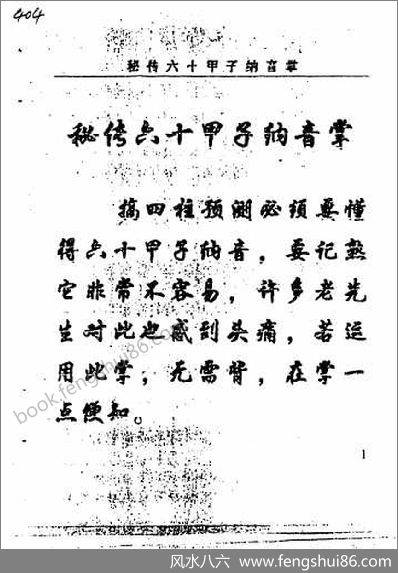 404
秘传六十甲子纳音掌
秘传六十甲子纳音掌
搞四柱预测必须要懂
得六十甲子纳音，要记熟
它非常不容易，许多老先
生对此也感到头痛，若运
用此掌，无需背，在掌一
点便知。
1
book.fengshui86.com
风水八六 www.fengshui86.com